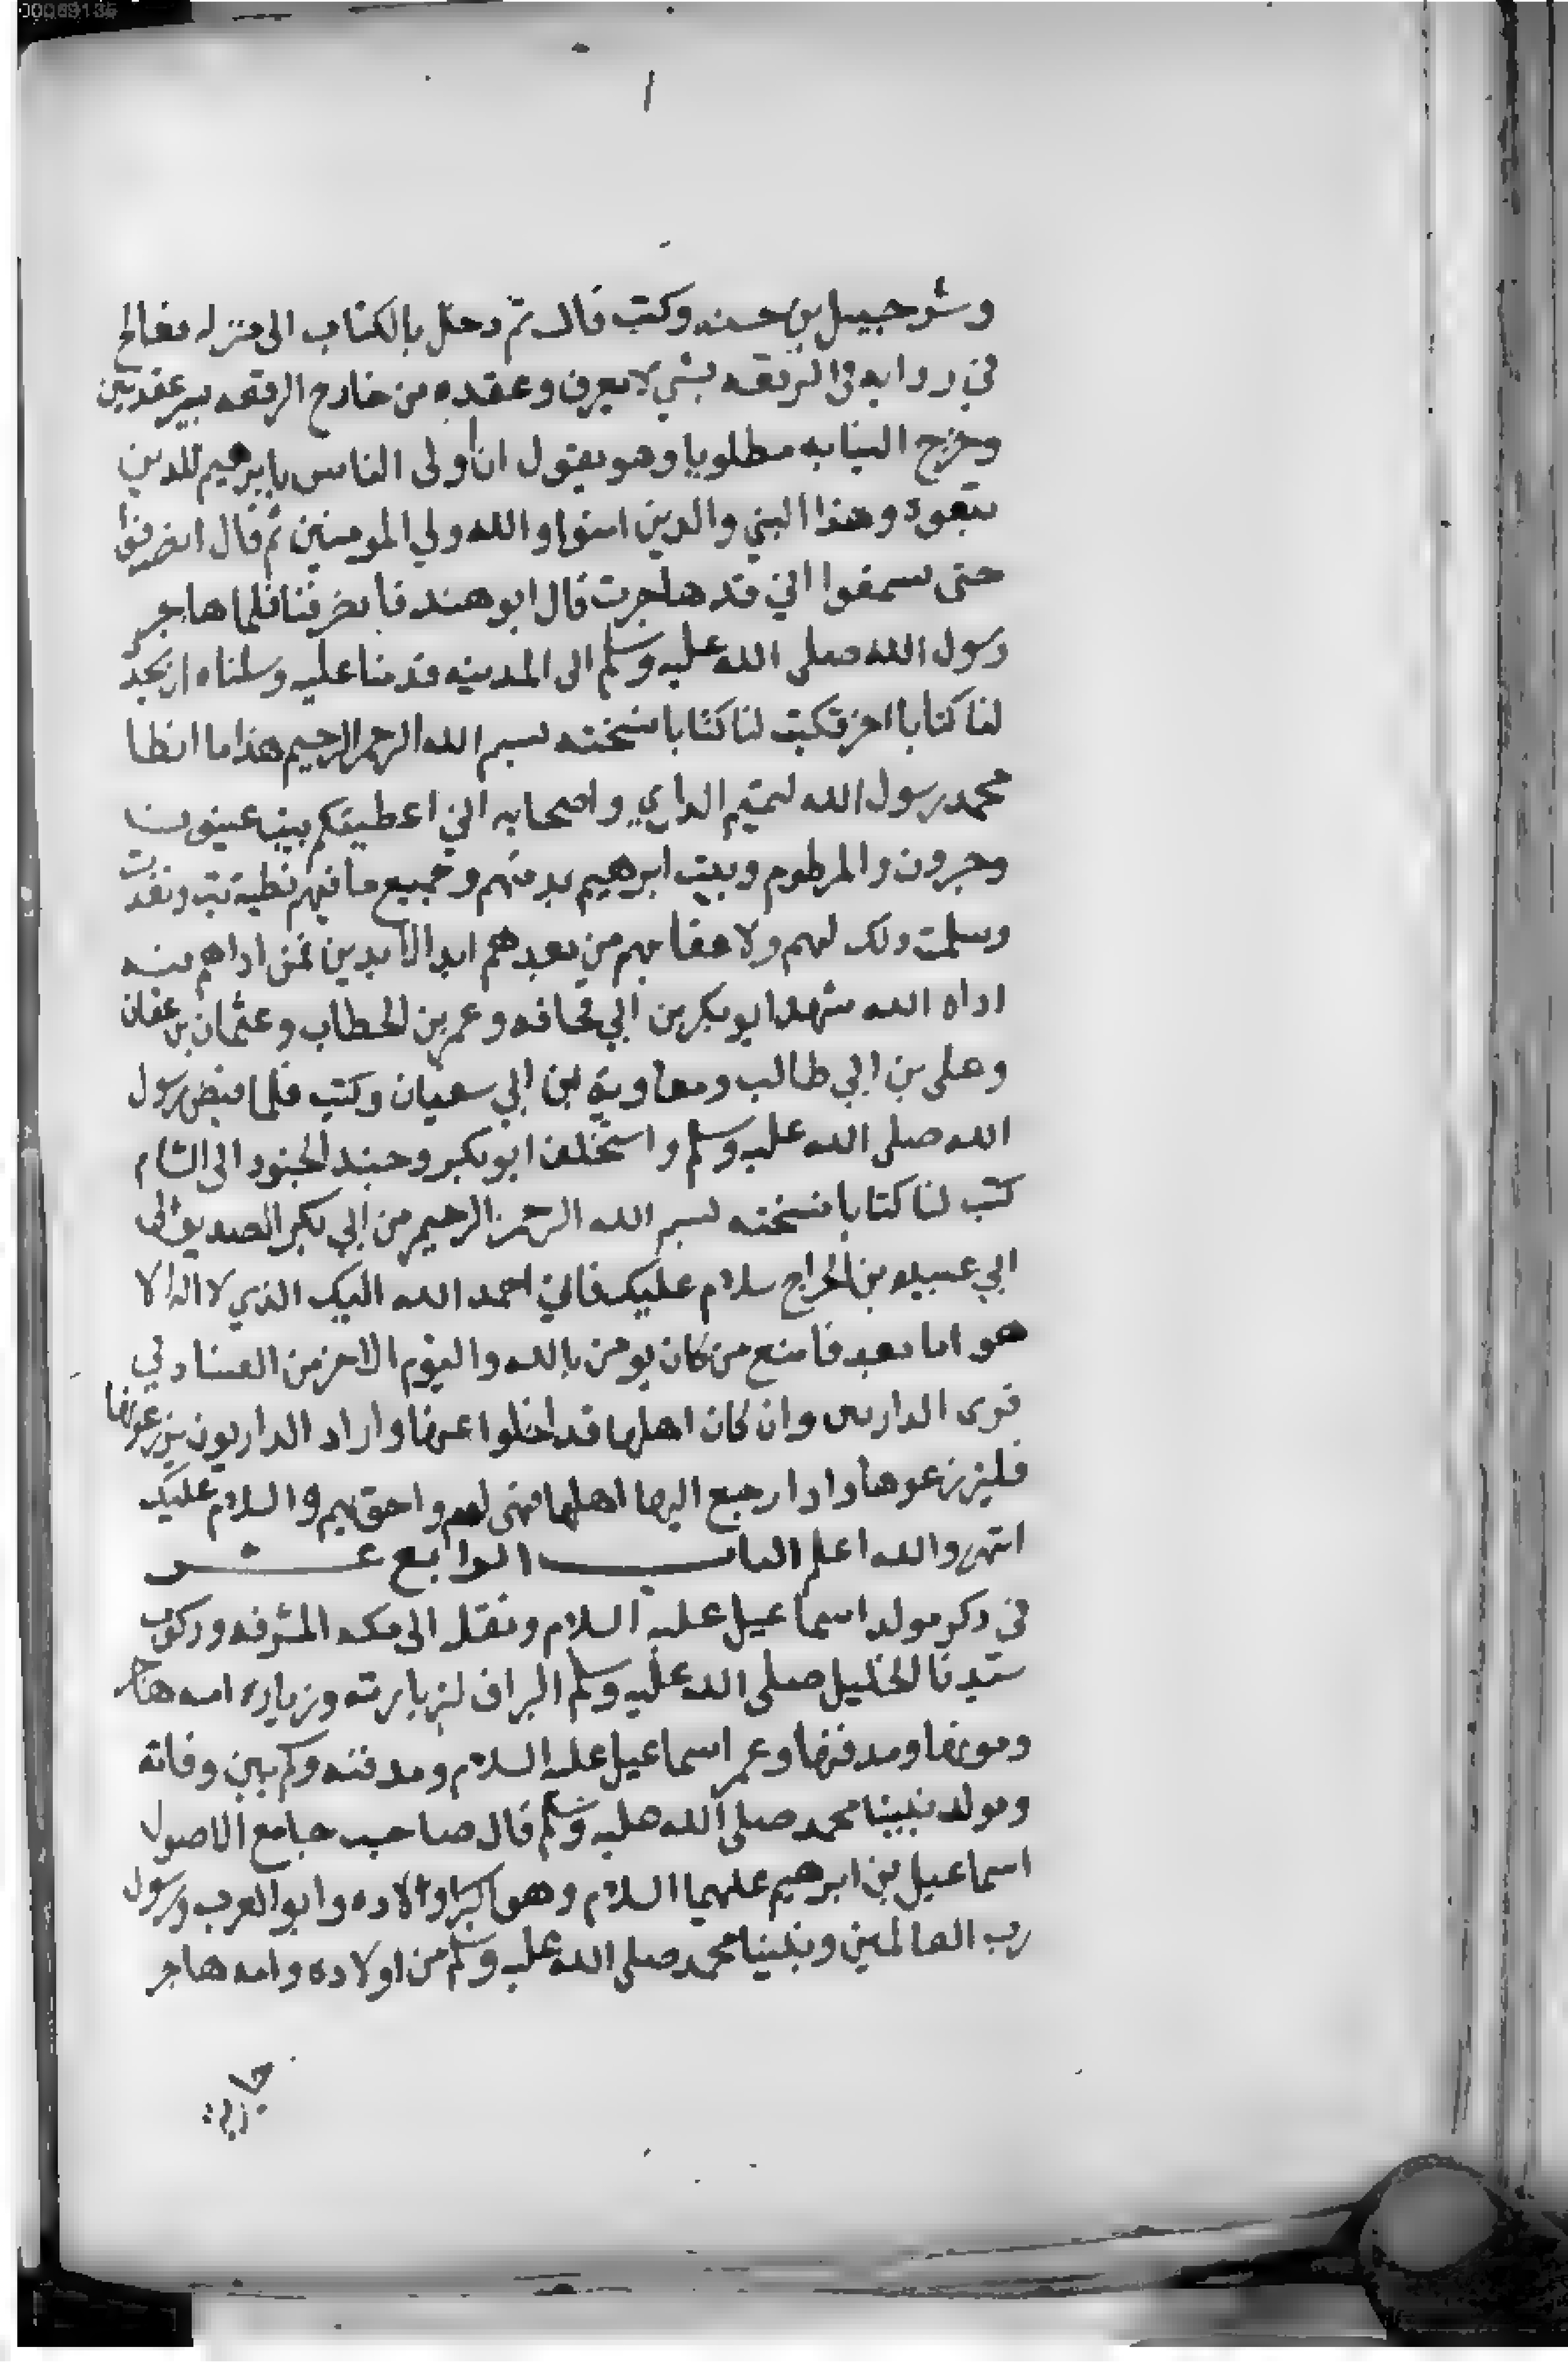 00069135
١
وشرحبيل بن حسنه وكتب قال ثم دخل بالكتاب الى منزله فعالج
في زوايه في الرقعه بشي لا يعرف وعقده من خارج الرقعه بسير عقدتين
وخرج الينا به مطلويا وهو يقول ان اولى الناس بابرهيم للذين
تبعوه وهذا النبي والذين امنوا والله ولي المومنين ثم قال انصرفوا
حتى تسمعوا اني قد هاجرت قال ابو هند فانصرفنا فلما هاجر
رسول الله صلى الله عليه وسلم الى المدينه قدمنا عليه وسلناه ان يجدد
لنا كتابا اخر فكتب لنا كتابا نسخته بسم الله الرحمن الرحيم هذا ما انطا
محمد رسول الله لتميم الداري واصحابه اني اعطيتكم بيت عينون
وحبرون والمرطوم وبيت ابرهيم برمتهم وجميع ما فيهم نطية بت ونفذت
وسلمت ذلك لهم ولاعقابهم من بعدهم ابد الابدين فمن اذاهم فيه
اذاه الله شهد ابو بكر بن ابي قحافه وعمر بن الخطاب وعثمان بن عفان
وعلي بن ابي طالب ومعاوية بن ابي سفيان وكتب فلما قبض رسول
الله صلى الله عليه وسلم واستخلف ابو بكر وجند الجنود الى الشام
كتب لنا كتابا نسخته بسم الله الرحمن الرحيم من ابي بكر الصديق الى
ابي عبيده بن الجراح سلام عليك فاني احمد الله اليك الذي لا اله الا
هو اما بعد فامنع من كان يومن بالله واليوم الاخر من الفساد في
قرى الداريين وان كان اهلها قد اخلوا عنها واراد الداريون يزرعونها
فليزرعوها واذا رجع اليها اهلها فهى لهم واحق بهم والسلام عليك
انتهى والله اعلم الباب الرابع عشر
في ذكر مولد اسماعيل عليه السلام ونقله الى مكه المشرفه وركوب
سيدنا الخليل صلى الله عليه وسلم البراق لزيارته وزياره امه هاجر
وموتها ومدفنها وعمر اسماعيل عليه السلام ومدفنه وكم بين وفاته
ومولد نبينا محمد صلى الله عليه وسلم قال صاحب جامع الاصول
اسماعيل بن ابرهيم عليهما السلام وهو اكبر اولاده وابو العرب ورسول
رب العالمين ونبينا محمد صلى الله عليه وسلم من اولاده وامه هاجر